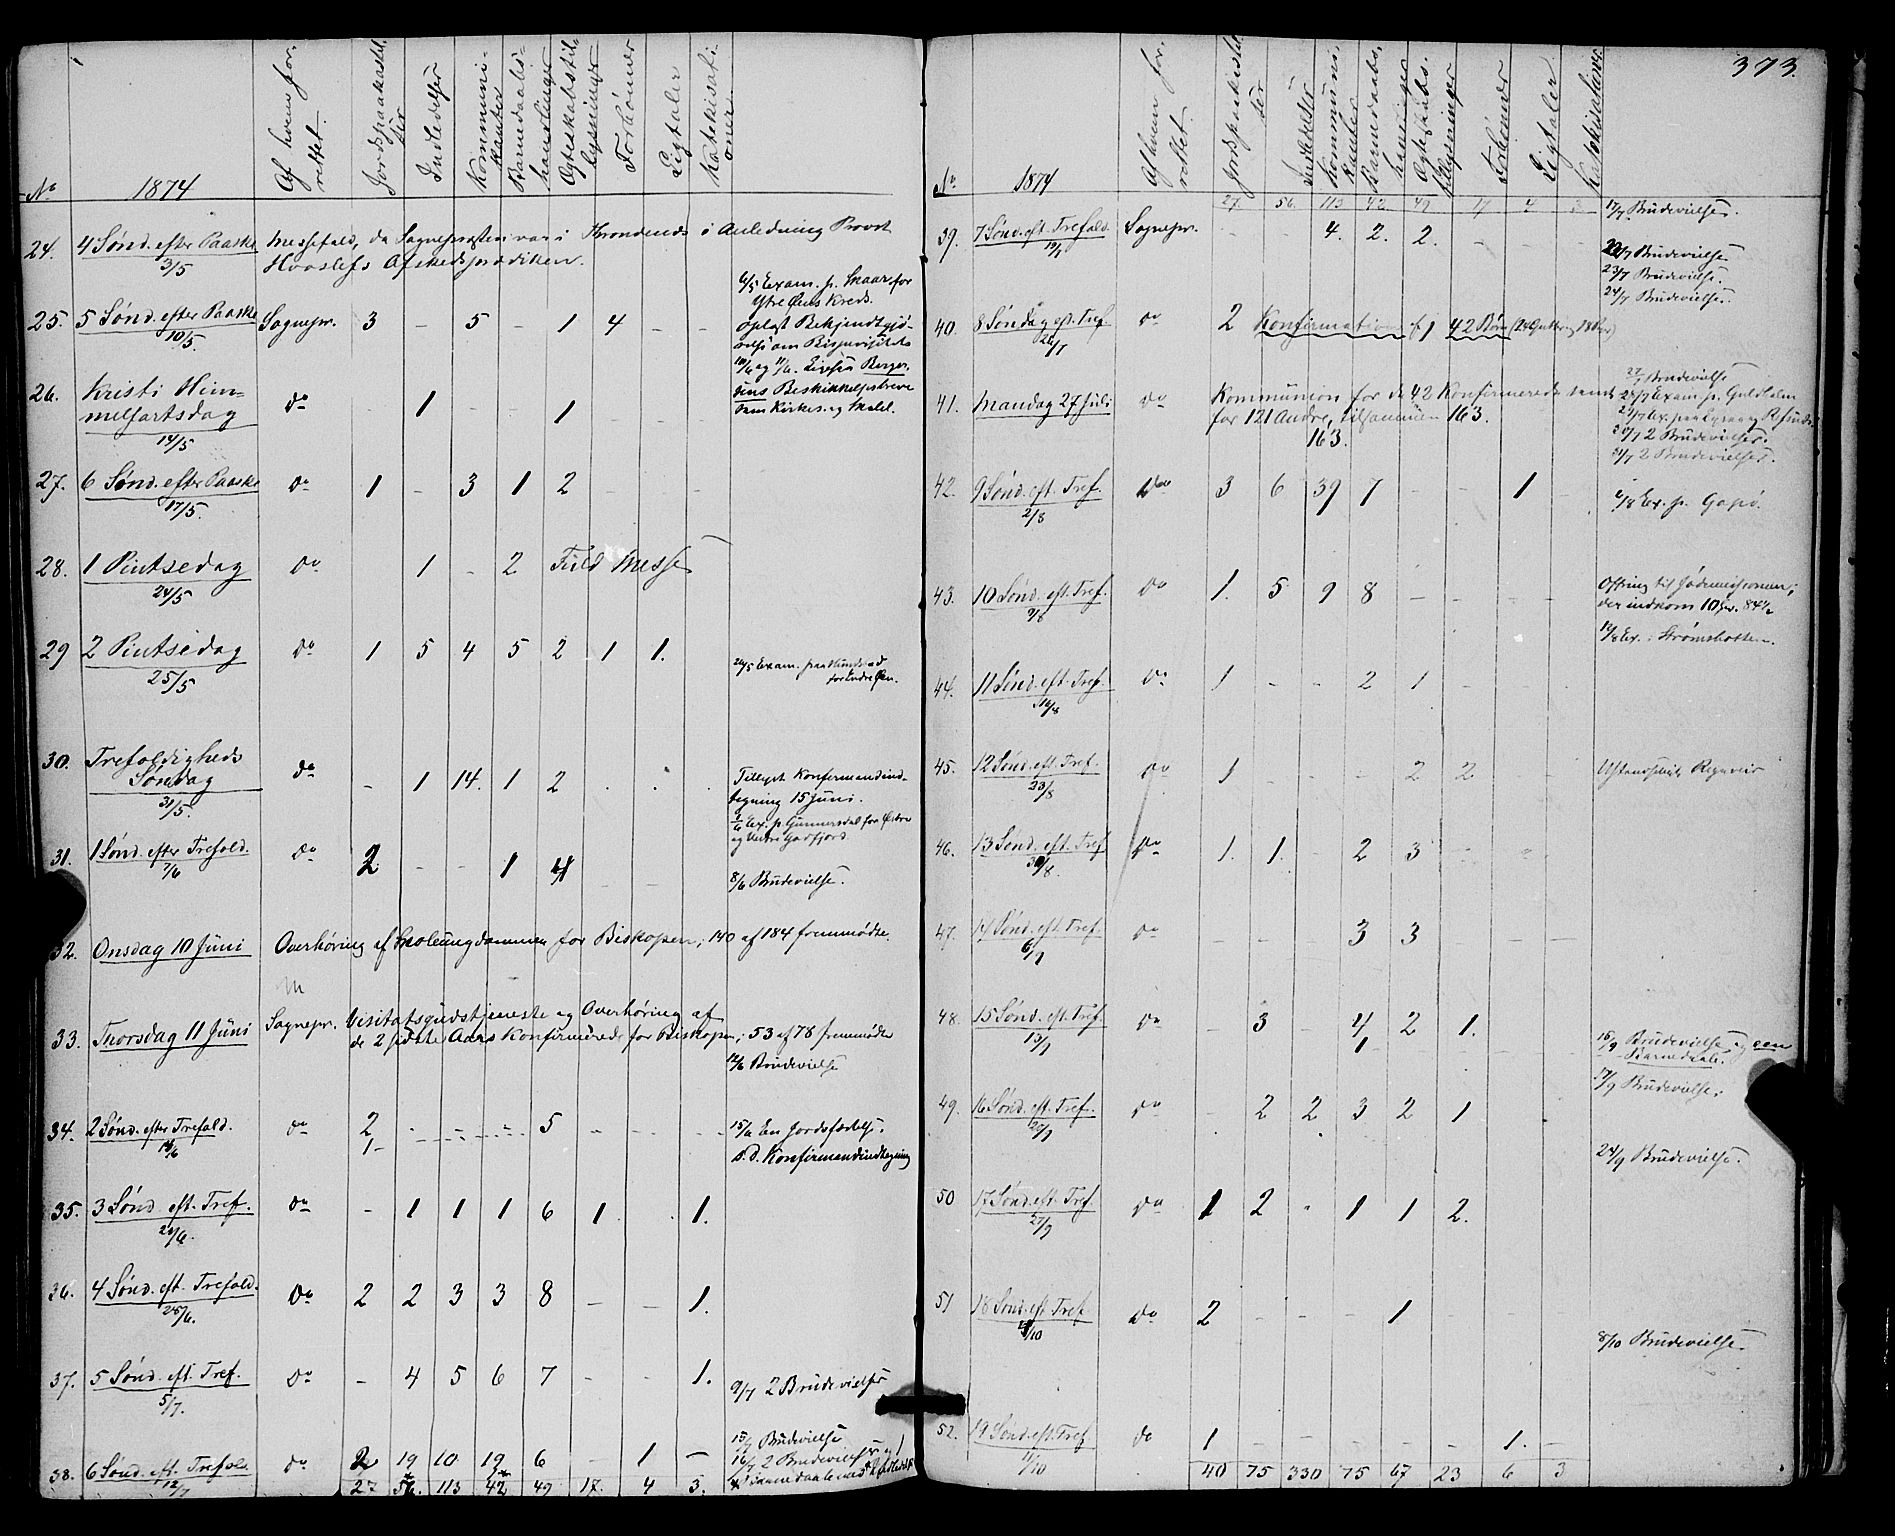 No
1874
Af hvem for-
rettet.
Jordspaakastel-
ser
Indledelser
Kommuni-
kanter
Barnedaabs-
handlinger
Ægteskabstil-
lysninger
Forbönner
Ligtaler
Katekisati-
oner
24. 4 Sønd. efter Paaske Messefald, da Sognepræsten var i Throndenes i Anledning Provst
3/5 Hvoslefs Afskedsprædiken.
6/5 Exam. p. for
Ytre Øens Kreds.
25. 5 Sønd. efter Paaske Sognepr. 3 – 5 – 1 4 – –
10/5.
oplæst Bekjendtgjø-
relse om Bispevisitats
10/6 og 11/6.
26. Kristi Him-
melfartsdag do 1 – – 1
14/5
Beskikkelsesbreve
som Kirkes. og
27. 6 Sønd. efter Paaske do 1 – 3 1 2 – – –
17/5.
28. 1 Pintsedag do 1 – 2 Fuld Messe
24/5
29 2 Pintsedag do 1 5 4 5 2 1 1.
25/5
26/5 Exam. paa
for Indre Øen.
30. Trefoldigheds
Søndag do – 1 14. 1 2 . . .
31/5.
Tillyst Konfirmandind-
tegning 15 Juni.
Ex. p. Gunnersdal for Østre
og Vestre Godfjord.
31. 1 Sønd. efter Trefold. do 2 – – 1 4 – –
7/6
8/6 Brudevielse.
32. Onsdag 10 Juni Overhøring af Skoleungdommen for Biskopen; 140 af 184 fremmødte.
33. Thorsdag 11 Juni Sognepr. Visitatsgudstjeneste og Overhøring af
de 2 sidste Aars Konfirmerede for Biskopen; 53 af 78 fremmødte
12/6 Brudevielse
34. 2 Sønd. efter Trefold. do 2 – – – 5 – – –
14/6 1–
15/6 En Jordsfæstelse.
S. D. Konfirmandindtegning
35. 3 Sønd. eft. Tref. do – 1 1 1 6 1 . 1.
21/6.
36. 4 Sønd. eft. Trefold. do 2 2 3 3 8 – – 1.
28/6.
37. 5 Sønd. eft. Tref. do – 4 5 6 7 – – 1.
5/7.
9/7 2 Brudevielser
15/7 Brudevielse
16/7 2 Brudevielser og 1
38. 6 Sønd. eft. Trefold. do 2 19 10 19 6 – 1 –
12/7 27 56. 113 42 49 17. 4 3.
373.
No
1874
Af hvem for-
rettet
Jordspaakastel-
ser
Indledelser
Kommuni-
kanter
Barnedaabs-
handlinger
Ægteskabs-
tillysninger
Forbönner
Ligtaler
Katekisationer
27. 56. 113 42 49 17 4 3
17/7. Brudevielse.
39. 7 Sønd. eft. Trefold. Sognepr. 4. 2. 2. – – –
19/7
22/7 Brudevielse
23/7 Brudevielse.
24/7 Brudevielse.
40. 8 Søndag eft. Tref. do 2 Konfirmation af 42 Børn (24 Gutter og 18 Piger)
26/7
27/7 Brudevielse
41. Mandag 27 Juli do Kommunion for de 42 Konfirmerede samt
for 121 Andre, tilsammen 163.
163.
28/7 Exam. p. Guldholm
29/7 Ex. paa
30/7 2 Brudevielser.
31/7 2 Brudevielser.
42. 9 Sønd. eft. Tref. do 3 6 39 7 – – 1 –
2/8
6/8 Ex. p. Gapø.
43. 10 Sønd. eft. Tref. do 1. 5 9 8 – – – –
9/8
Offring til Jødemissionen,
der indkom
12/8 Ex. i Strømsbotten.
44. 11 Sønd. eft. Tref. do 1 – – 2 1 – –
16/8
45. 12 Sønd. eft. Tref. do 1 – – – 2 2 –
23/8
Regnveir
46. 13 Sønd. eft. Tref do 1. 1. – 2 3 – –
30/8.
47. 14 Sønd. eft. Tref. do – – – 3 3 – –
6/9
48. 15 Sønd. eft. Tref do – 3 – 4 2 1.
13/9 1
15/9 Brudevielse og een
Barnedaab.
17/9 Brudevielse.
49. 16 Sønd. eft. Tref. do – 2 2 3 2 1
20/9
24/9 Brudevielse.
50 17 Sønd. eft. Tref do 1 2 – 1 1 2.
27/9
51 18 Sønd. eft. Tref do 2 – – – 1
4/10
8/10 Brudevielse.
52. 19 Sønd. eft. Tref do 1 – – – – – 1. –
11/10 40 75 330 75 67 23 6 3